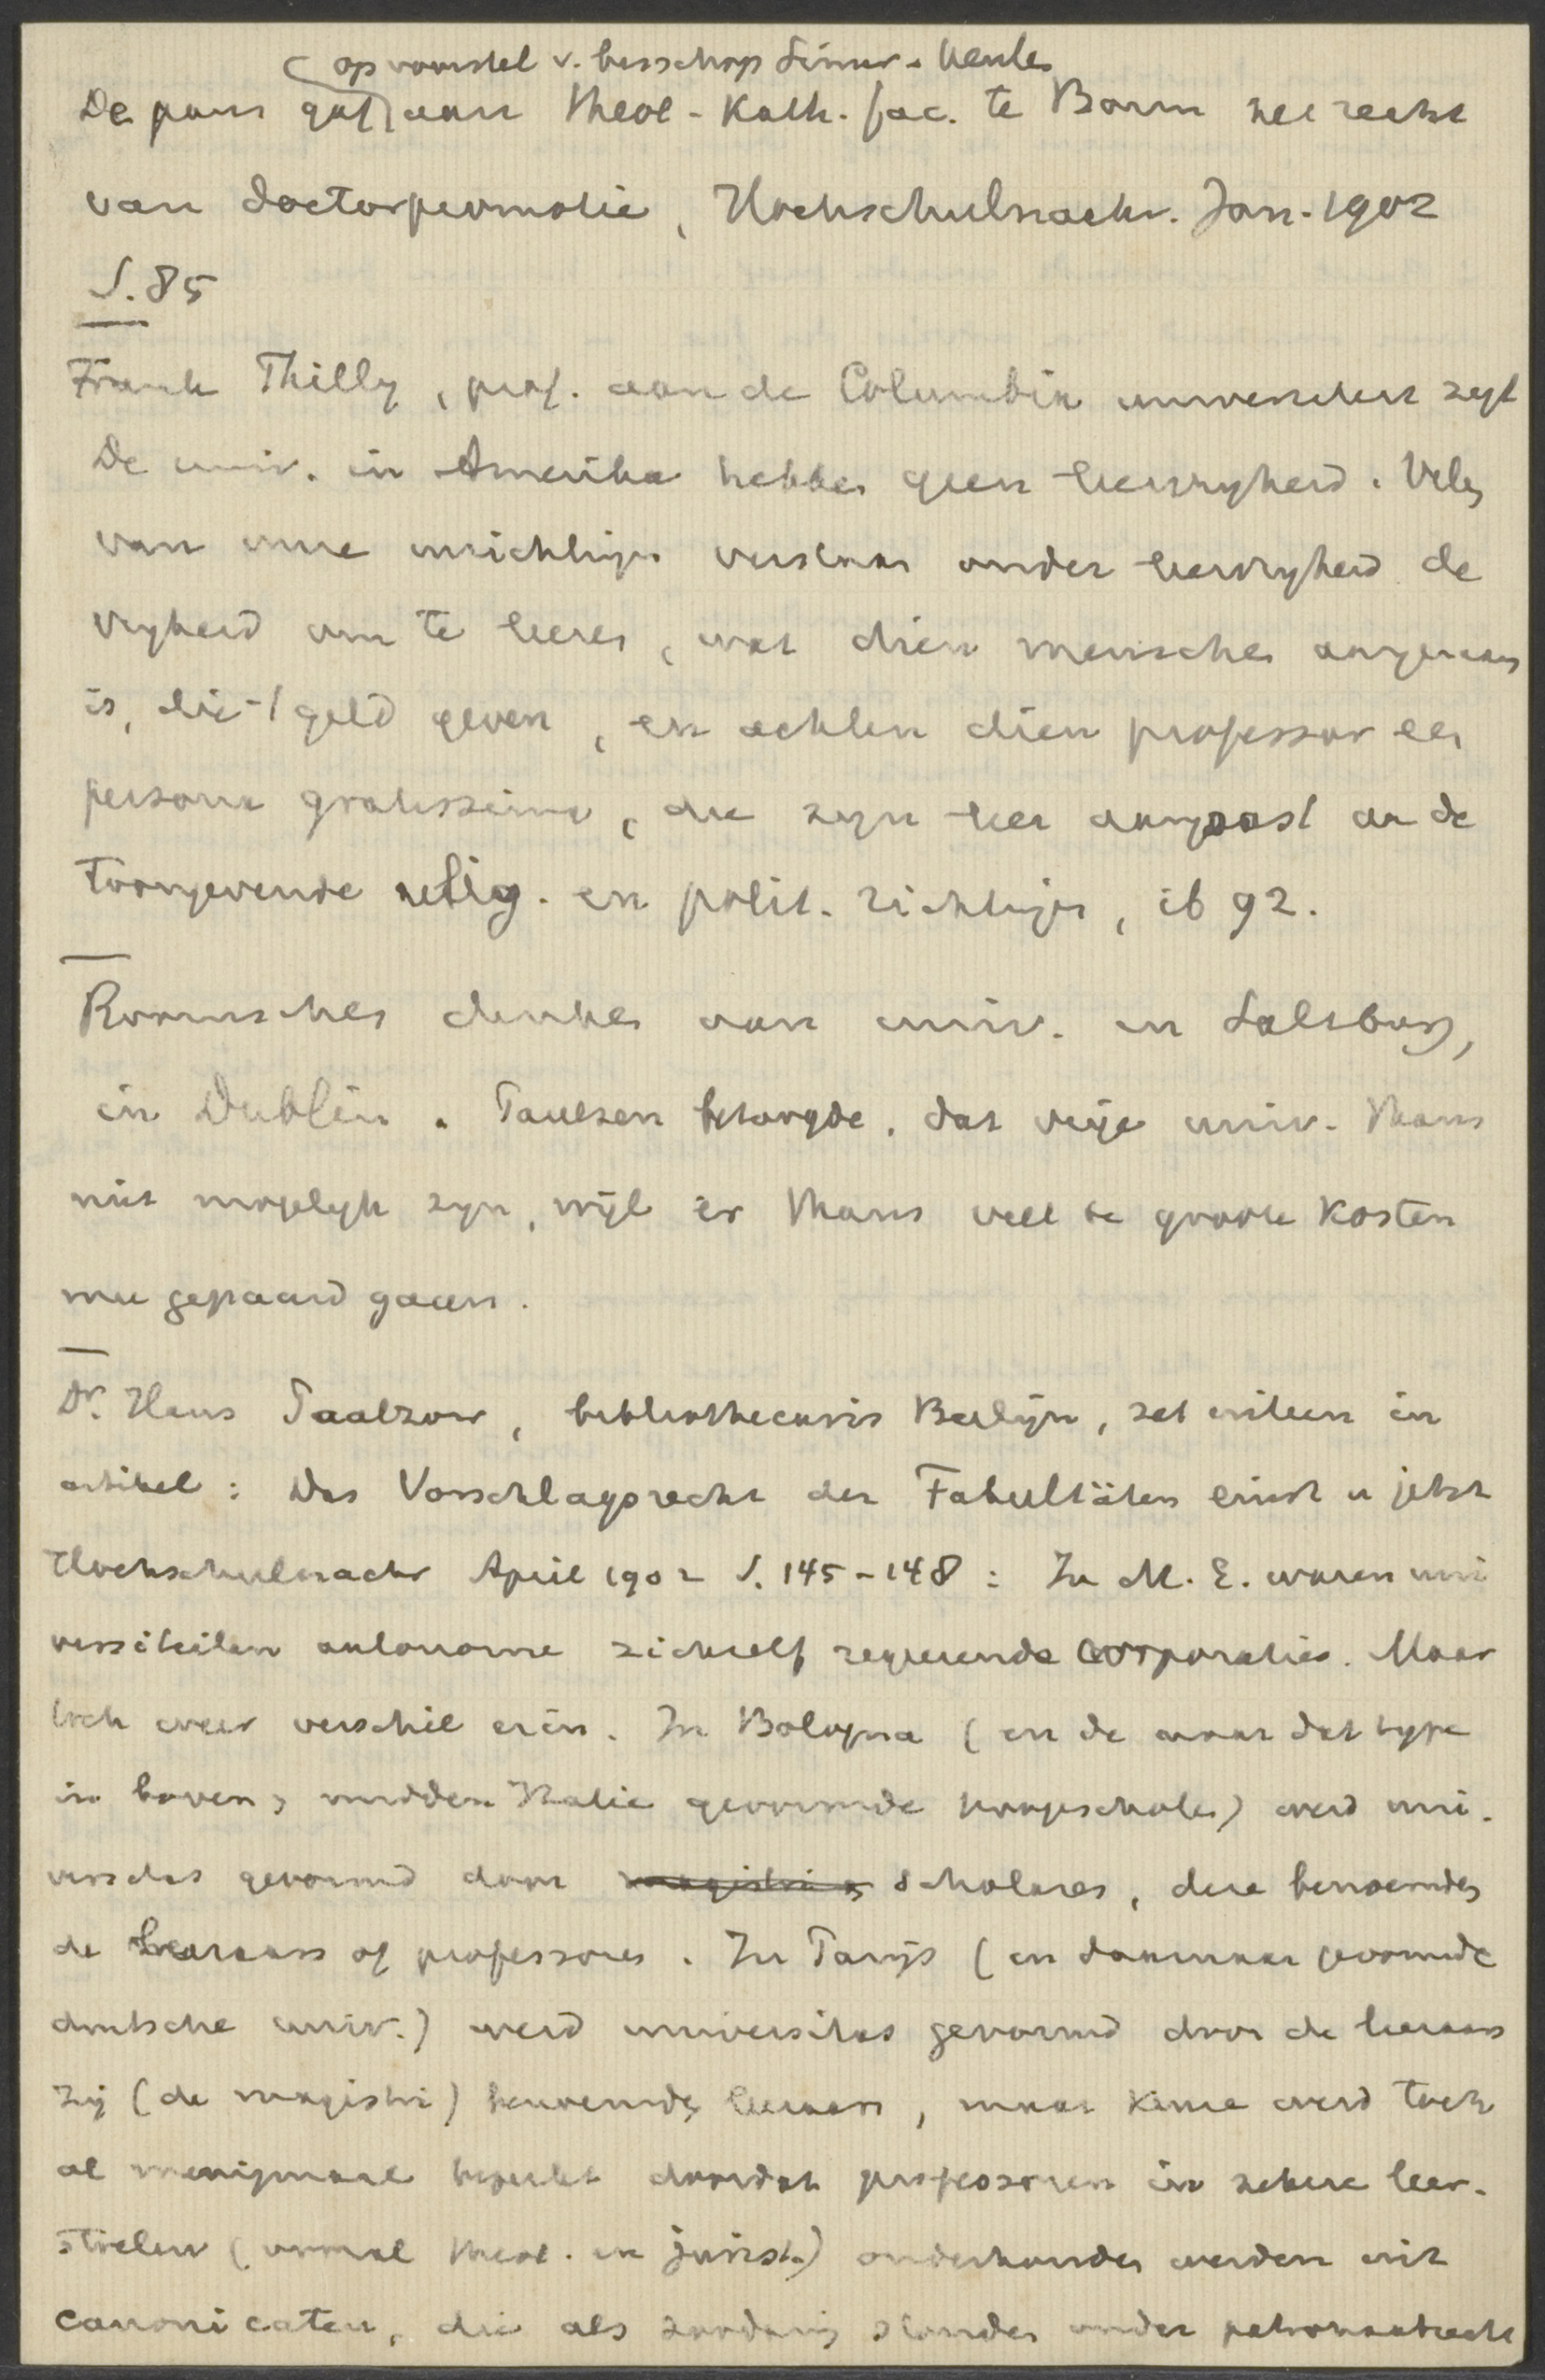 op voorstel v. bisschop Simar
De paus gaf aan theol-Kath. fac. te Bonn het recht
van doctorpromotie, Hochschulnachr. Jan. 1902
S. 85
Frank Thilly, prof. aan de Columbia universiteit zegt
De univ. in Amerika hebben geen leervryheid. Velen
van onze inrichtingen verstaan onder leervryheid de
vryheid om te leeren, wat dien menschen aangenaam
is, die 't geld geven, en achten dien professor een
persona gratissima, die zyn leer aanpast aan de
toongevende relig. en polit. richtingen, ib 92.
Roomschen denken aan univ. in Salzburg,
in Dublin. Paulsen betoogde, dat vrije univ. thans
niet mogelyk zyn, wijl er thans veel te groote kosten
mee gepaard gaan.
Dr. Hans Paalzow, bibliothecaris Berlijn, zet uiteen in
artikel: Das Vorschlagsrecht der Fakultäten einst u jetzt
Hochschulnachr April 1902 S. 145-148: In M. E. waren uni
versiteiten autonome zichzelf regeerende corporaties. Maar
toch weer verschil erin. In Bologna (en de naar dat type
in boven en midden Italie gevormde hoogescholen) werd uni-
versitas gevormd door magistri en scholares, deze benoemden
de leeraars of professores. In Parijs (en daarnaar gevormde
duitsche univ.) werd universitas gevormd door de leeraars
zij (de magistri) benoemden leeraars, maar keuze werd toch
al menigmaal beperkt doordat professoren in zekere leer-
stoelen (vooral theol. en jurist.) onderhouden werden uit
canonicaten, die als zoodanig stonden onder patronaatrecht